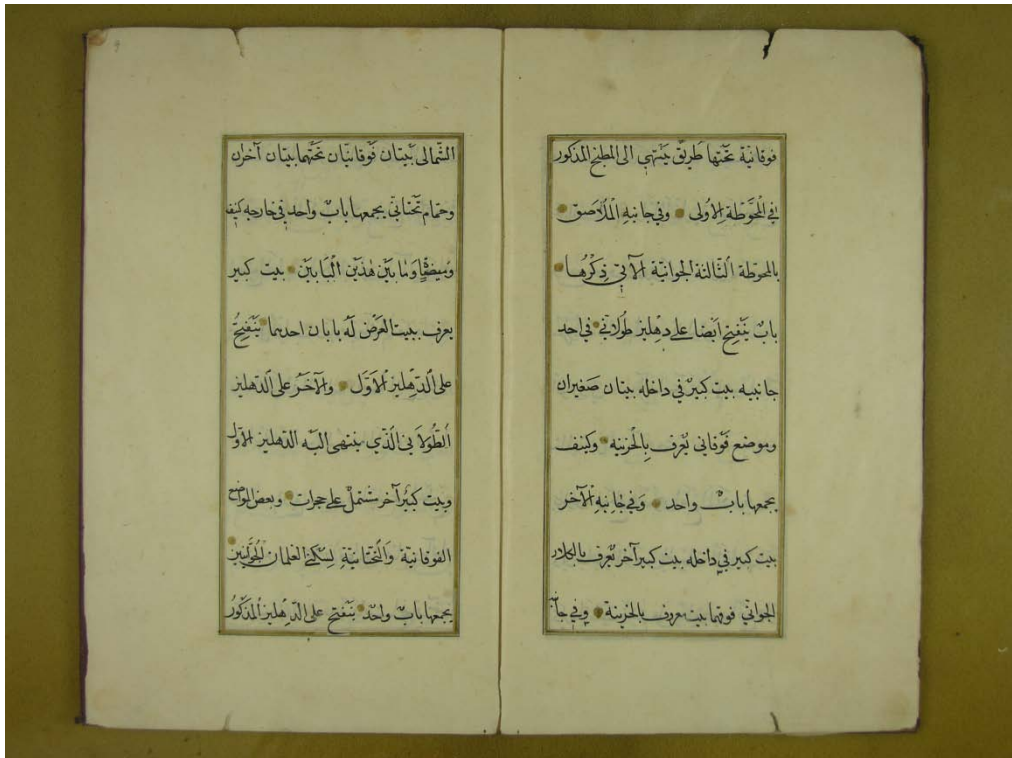 فوقانية تحتها طريق ينتهي الى المطبخ المذكور
في المحوّطة الاولى وفي جانبه الملاصق
بالمحوطة الثالثة الجوانية الآتي ذكرها
بابٌ ينفتح ايضا على دهليز طولاني في احد
جانبيه بيت كبير في داخله بيتان صغيران
وموضع فوقاني يعرف بالخزينه وكنيف
يجمعها باب واحد وفي جانبه الآخر
بيت كبير في داخله بيت كبير آخر يعرف بالكلار
الجواني فوقهما بيت معروف بالخزينة وفي جانبه
الشمالى بيتان فوقانيان تحتهما بيتان آخران
وحمام تحتاني يجمعها بابٌ واحد في خارجه كنيف
وميضأ وما بين هذين البابين بيت كبير
يعرف ببيت العرض له بابان احدهما ينفتح
على الدهليز الاوّل والآخر على الدهليز
الطولاني الذي ينتهى اليه الدهليز الاول
وبيت كبير آخر مشتمل على حجرات وبعض المواضع
الفوقانية والتحتانية لسكنى الغلمان
يجمعها باب واحد ينفتح على الدهليز المذكور